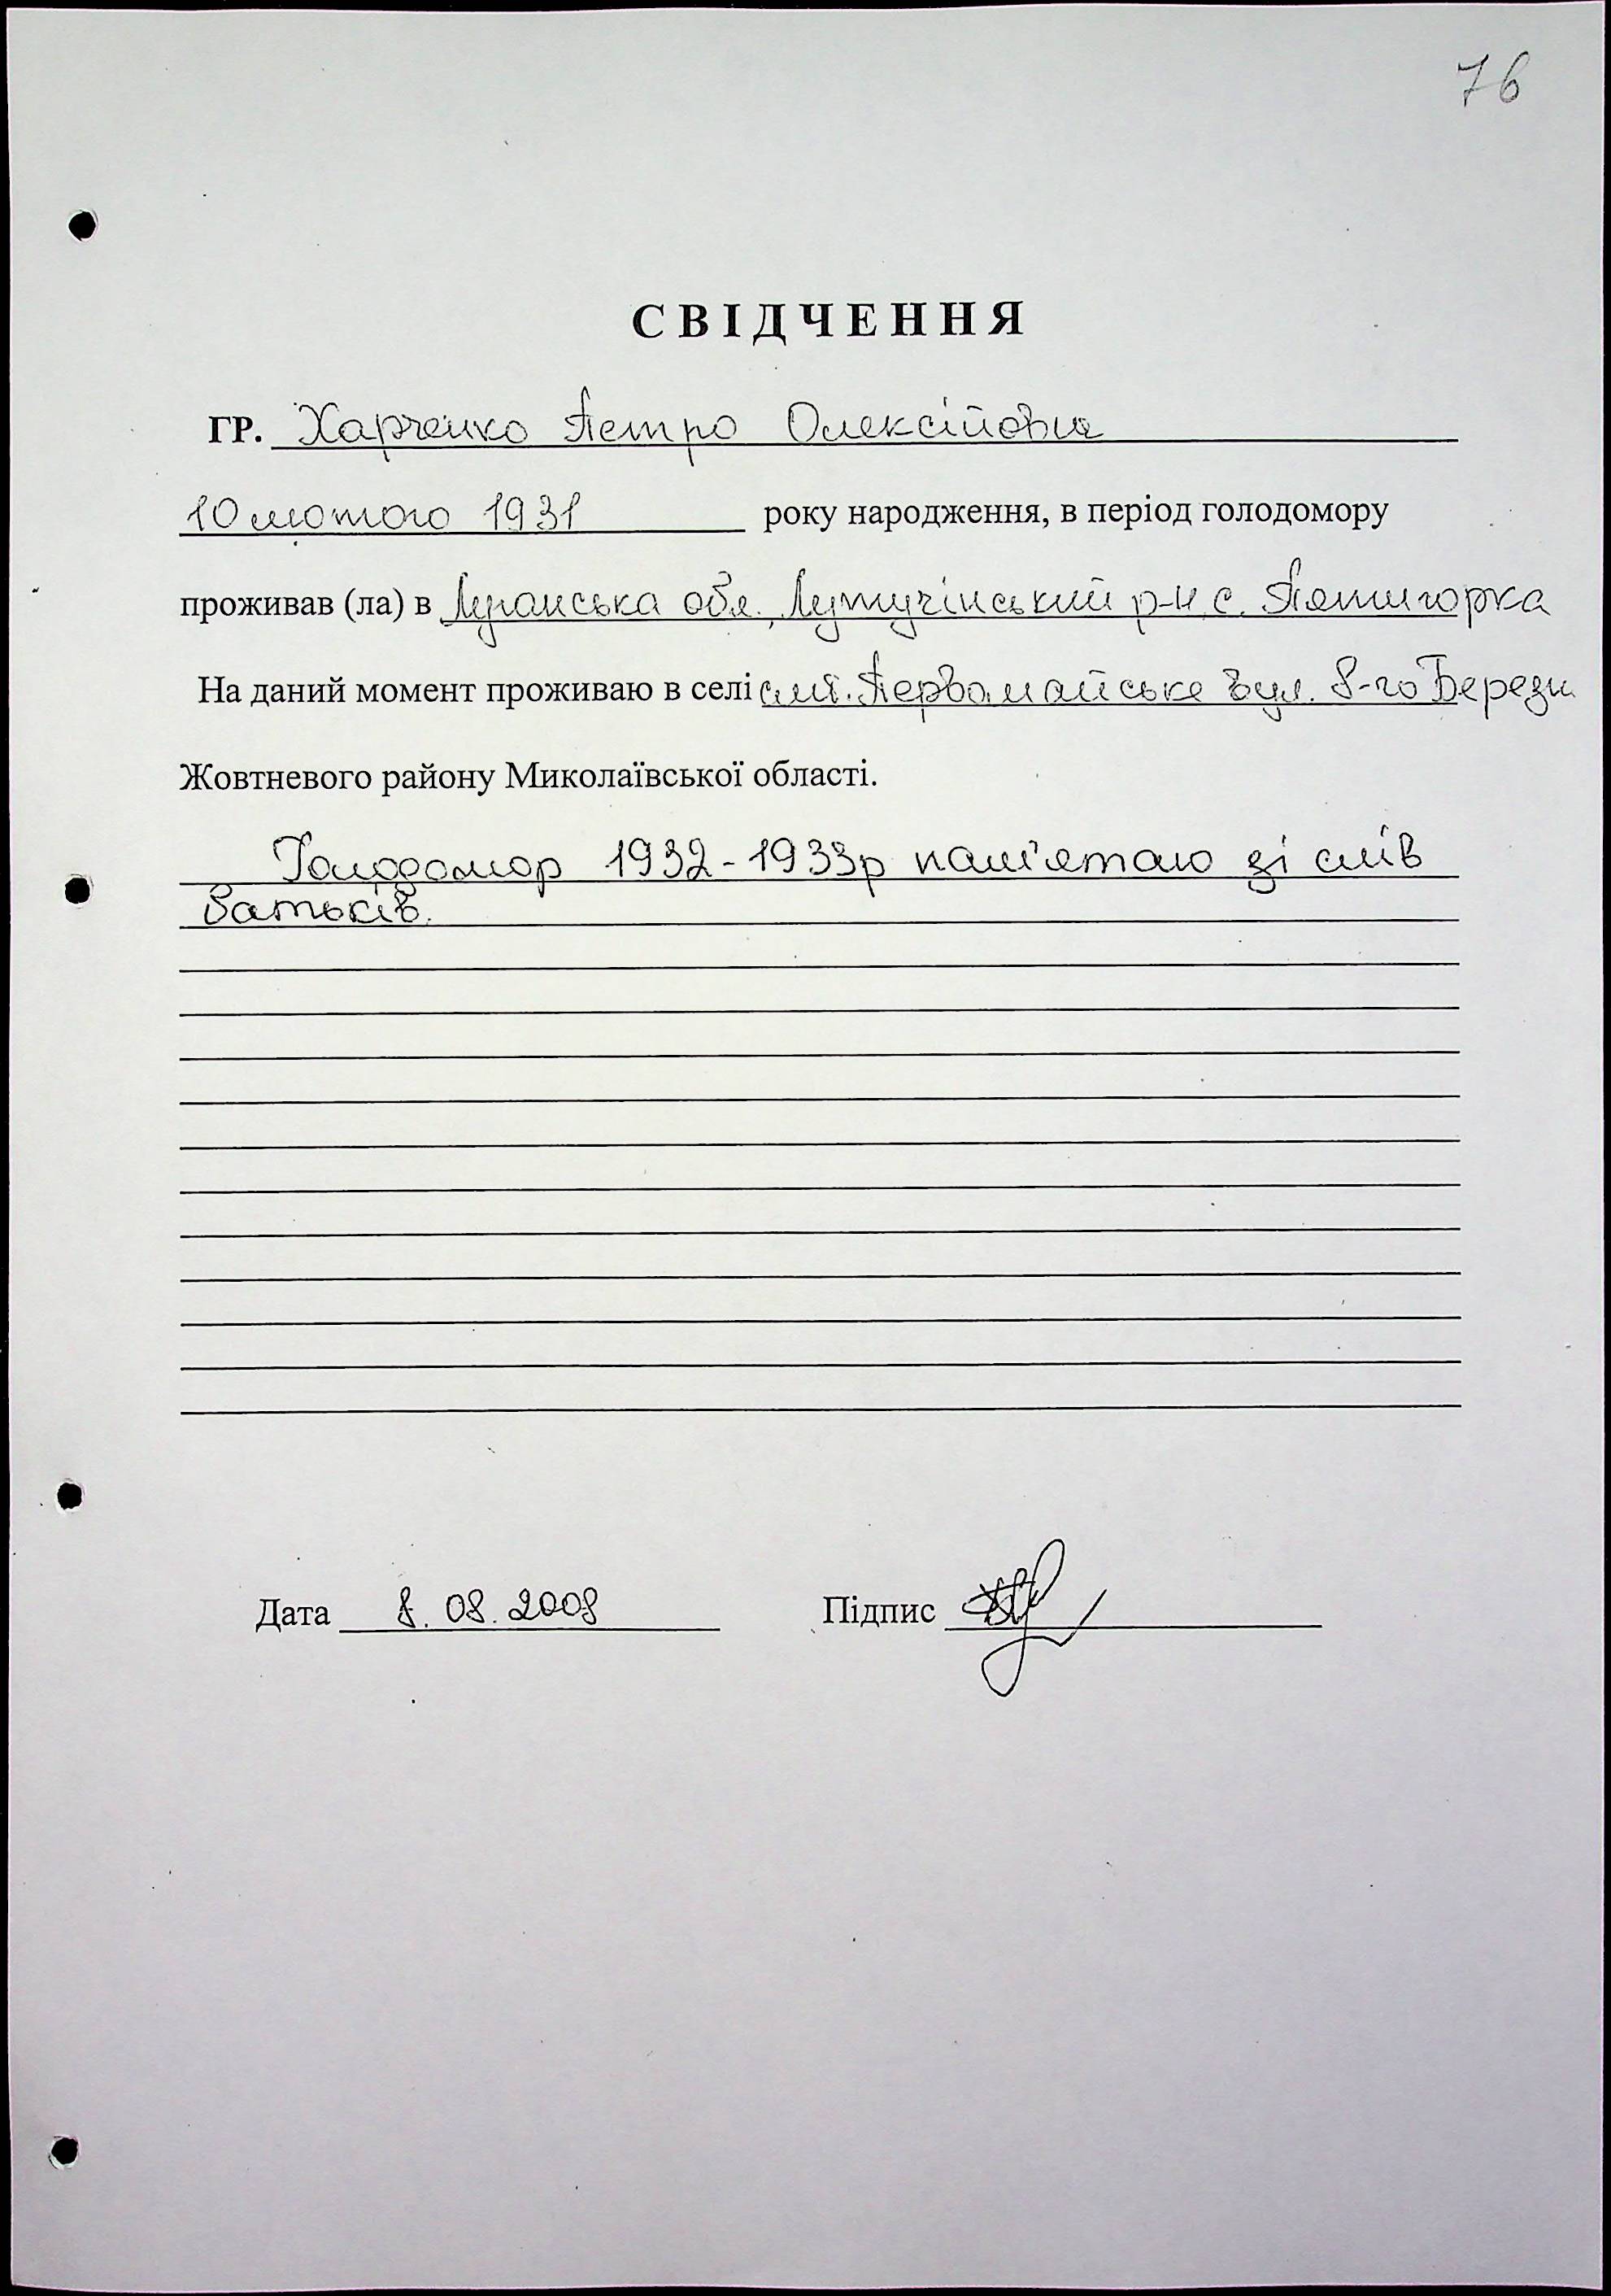 76
СВІДЧЕННЯ
ГР. Харченко Петро Олексійович
10 лютого 1931 року народження, в період голодомору
проживав (ла) в Луганська обл. Лутучінський р-н с. Пятигорка
На даний момент проживаю в селі смт. Первомайське вул. 8-го Березн
Жовтневого району Миколаївської області.
Голодомор 1932-1933р пам'ятаю зі слів
батьків.
Дата 8.08.2008 Підпис